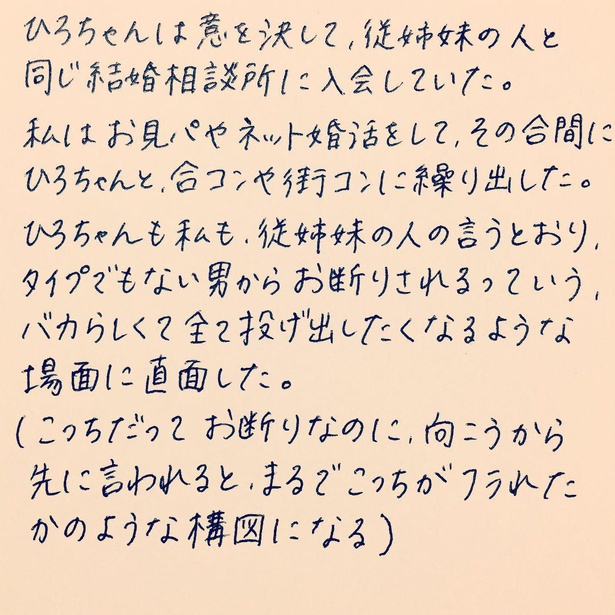 ひろちゃんは意を決して、従姉妹の人と
同じ結婚相談所に入会していた。
私はお見パやネット婚活をして、その合間に
ひろちゃんと、合コンや街コンに繰り出した。
ひろちゃんも私も、従姉妹の人の言うとおり、
タイプでもない男からお断りされるっていう、
バカらしくて全て投げ出したくなるような
場面に直面した。
(こっちだってお断りなのに、向こうから
先に言われると、まるでこっちがフラれた
かのような構図になる)